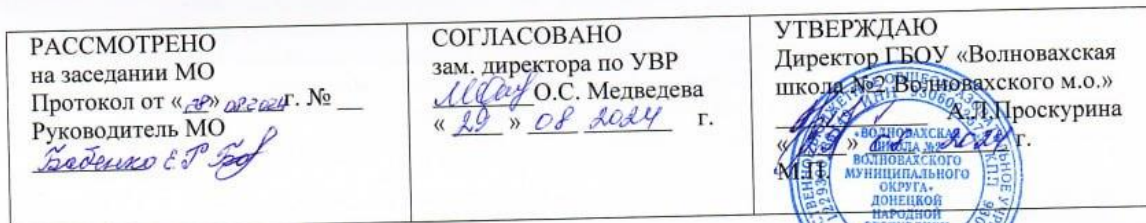 РАССМОТРЕНО
на заседании МО
Протокол от «28» 08.2024г. № __
Руководитель МО
Бабенко Е.Р
СОГЛАСОВАНО
зам. директора по УВР
О.С. Медведева
« 29 » 08 2024 г.
УТВЕРЖДАЮ
Директор ГБОУ «Волновахская
школа №2 Волновахского м.о.»
А.Л.Проскурина
г.
М.П.
«ВОЛНОВАХСКАЯ
ШКОЛА №2
ВОЛНОВАХСКОГО
МУНИЦИПАЛЬНОГО
ОКРУГА»
ДОНЕЦКОЙ
НАРОДНОЙ